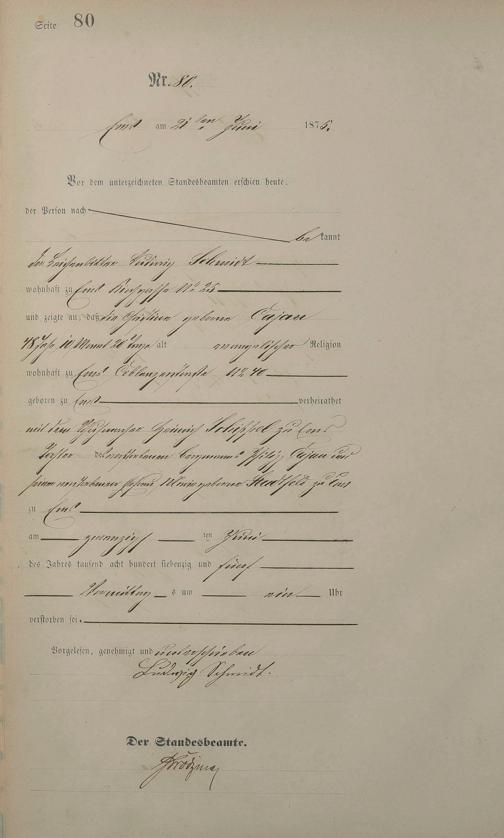 Seite 80
Nr. 80.
Ems am 21ten Juni 1875.
Vor dem unterzeichneten Standesbeamten erschien heute,
der Person nach
bekannt
der Ludwig Schmidt
wohnhaft zu Ems No 25
und zeigte an, daß die geborene Cajan
48 Jahr 10 Monat 20 Tage alt evangelischer Religion
wohnhaft zu Ems Coblenzerstraße No 40
geboren zu Ems verheirathet
mit dem Heinrich zu Ems
Tochter des verstorbenen Philipp Cajan und
seiner verstorbenen geborene zu Ems
zu Ems
am zwanzigsten Juni
des Jahres tausend acht hundert siebenzig und fünf
Vormittags um ein Uhr
verstorben sei.
Vorgelesen, genehmigt und unterschrieben
Ludwig Schmidt.
Der Standesbeamte.